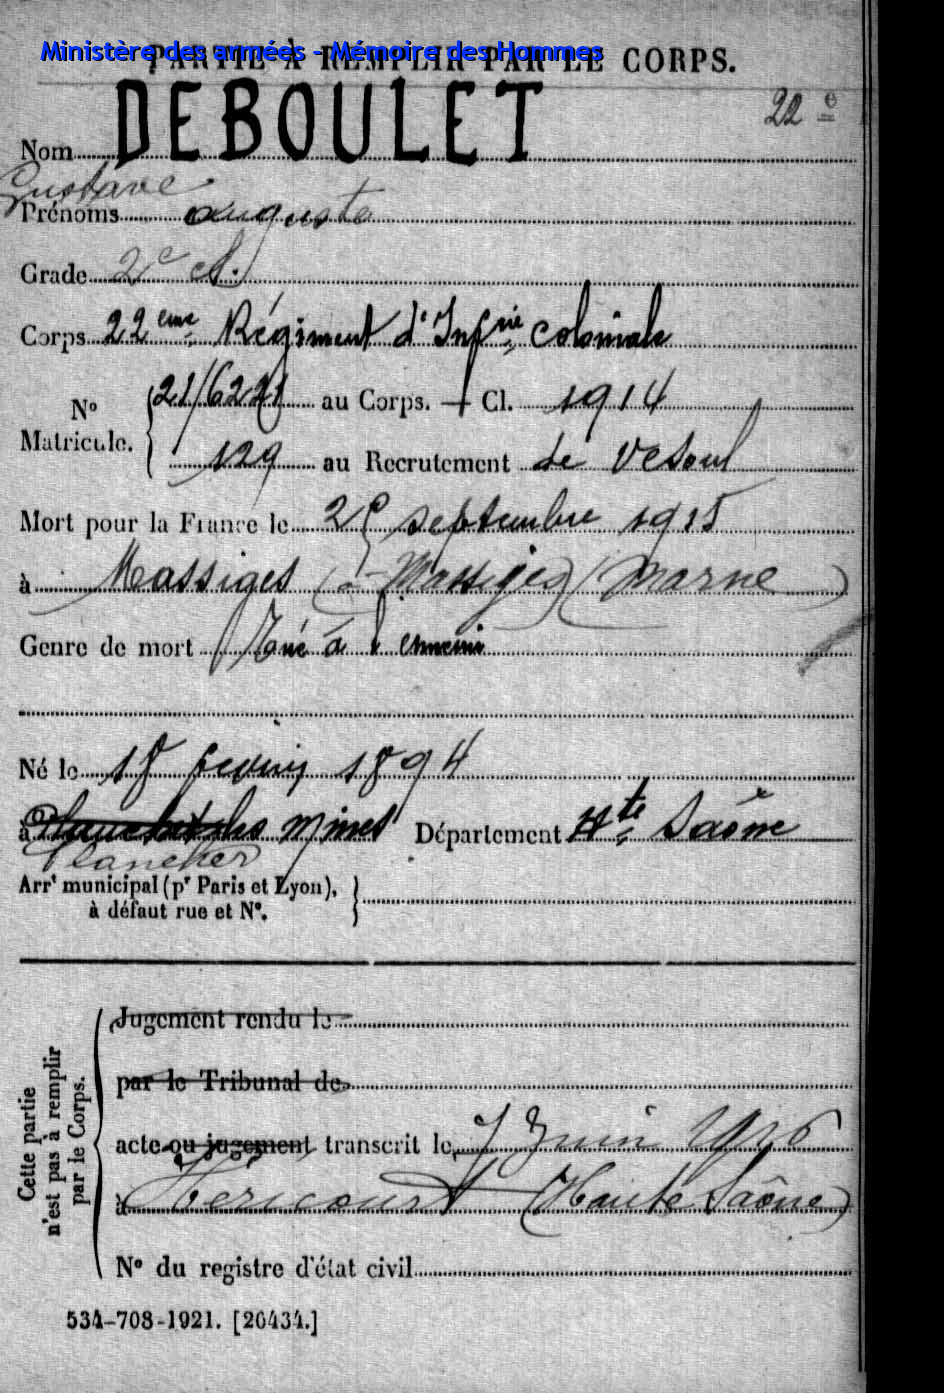 Ministère des armées - Mémoire des Hommes
PARTIE À REMPLIR PAR LE CORPS.
22e
Nom DEBOULET
Gustave
Prénoms auguste
Grade 2e cl.
Corps 22eme Régiment d'Infrie coloniale
No Matricule. 21/6221 au Corps. Cl. 1914
129 au Recrutement de Vesoul
Mort pour la France le septembre 1915
à Massiges (à Massiges) (Marne)
Genre de mort Tué à l'ennemi
Né le 18 fevrier 1894
à mines Département Hte Saône
Plancher
Arrt municipal (pr Paris et Lyon),
à défaut rue et No.
Cette partie
n'est pas à remplir
par le Corps.
Jugement rendu le
par le Tribunal de
acte ou jugement transcrit le 7 Juin 1916
à Héricourt (Haute Saône)
No du registre d'état civil
534-708-1921. [26434.]